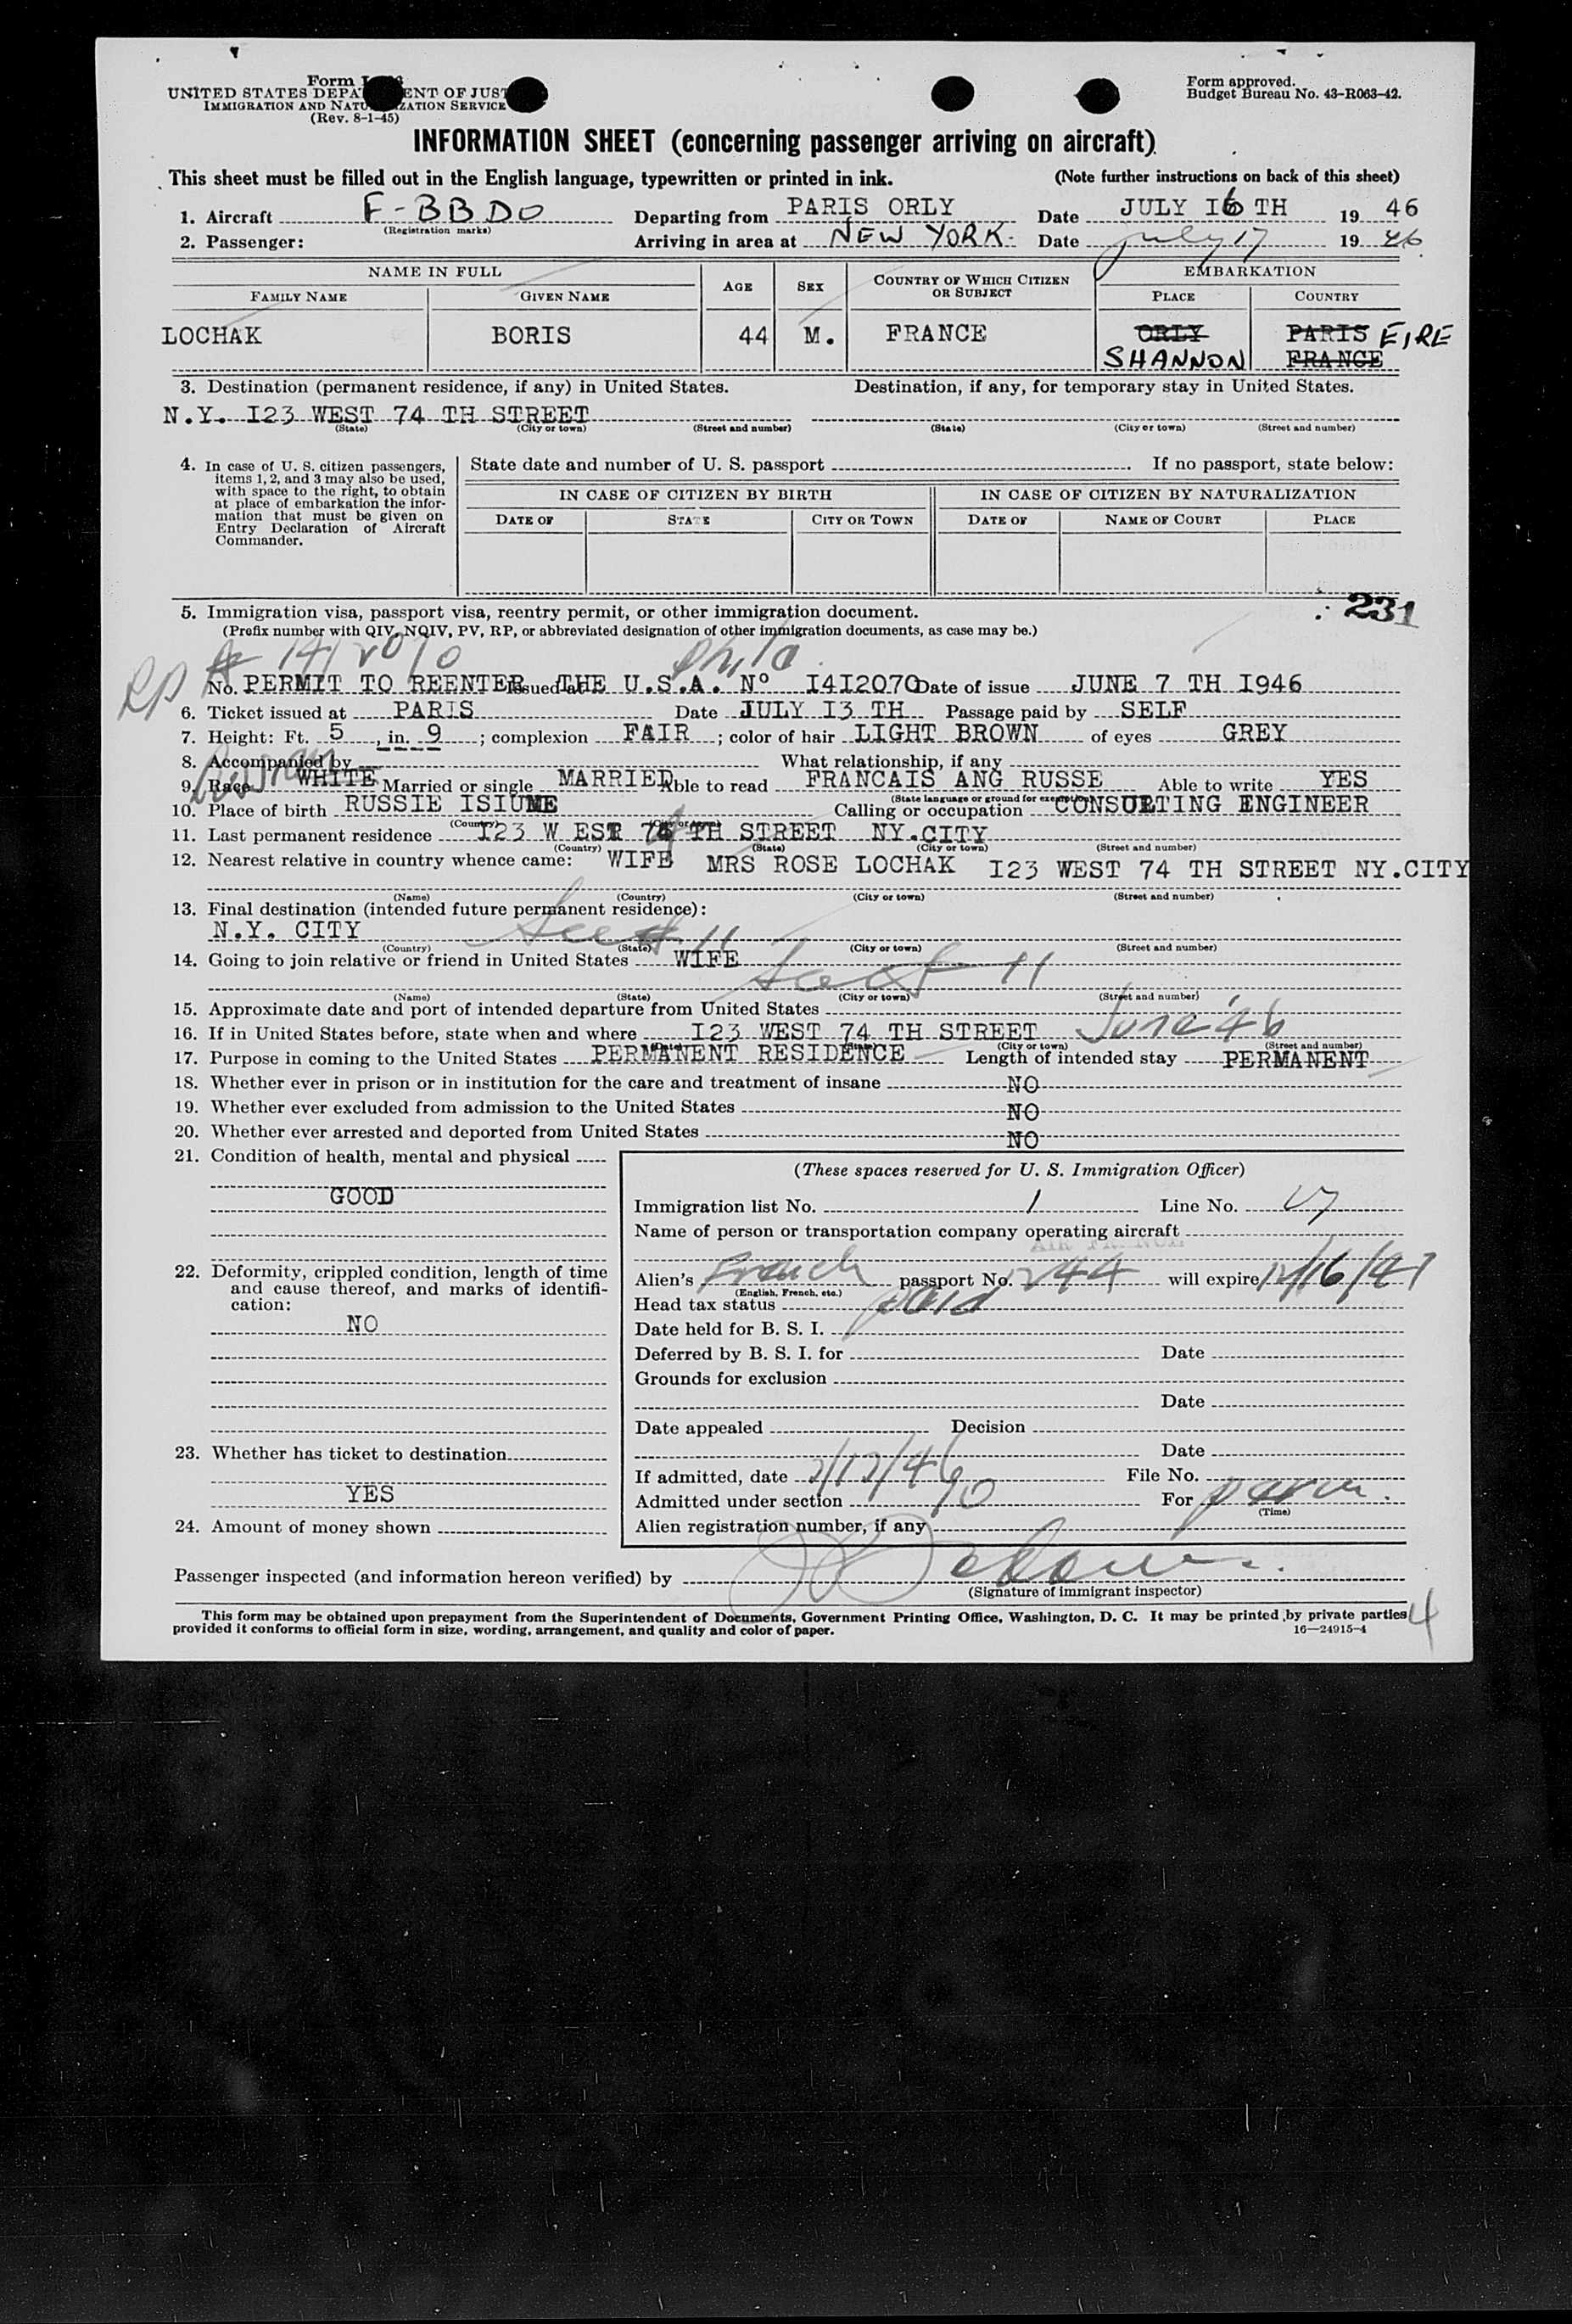 Form I
UNITED STATES DEPA ENT OF JUST
IMMIGRATION AND NATU ZATION SERVICE
(Rev. 8-1-45)
Form approved.
Budget Bureau No. 43-R063-42.
INFORMATION SHEET (concerning passenger arriving on aircraft)
This sheet must be filled out in the English language, typewritten or printed in ink. (Note further instructions on back of this sheet)
1. Aircraft F-BBDO Departing from PARIS ORLY Date JULY I6 TH 19 46
(Registration marks)
2. Passenger: Arriving in area at NEW YORK. Date July 17 19 46
NAME IN FULL AGE SEX COUNTRY OF WHICH CITIZEN OR SUBJECT EMBARKATION
FAMILY NAME GIVEN NAME PLACE COUNTRY
LOCHAK BORIS 44 M. FRANCE ORLY PARIS EIRE
SHANNON FRANCE
3. Destination (permanent residence, if any) in United States. Destination, if any, for temporary stay in United States.
N.Y. I23 WEST 74 TH STREET
(State) (City or town) (Street and number) (State) (City or town) (Street and number)
4. In case of U. S. citizen passengers, items 1, 2, and 3 may also be used, with space to the right, to obtain at place of embarkation the information that must be given on Entry Declaration of Aircraft Commander.
State date and number of U. S. passport . If no passport, state below:
IN CASE OF CITIZEN BY BIRTH IN CASE OF CITIZEN BY NATURALIZATION
DATE OF STATE CITY OR TOWN DATE OF NAME OF COURT PLACE
231
5. Immigration visa, passport visa, reentry permit, or other immigration document.
(Prefix number with QIV, NQIV, PV, RP, or abbreviated designation of other immigration documents, as case may be.)
RP Phila
No. PERMIT TO REENTER Issued at THE U.S.A. Nº I4I2070 Date of issue JUNE 7 TH I946
6. Ticket issued at PARIS Date JULY I3 TH Passage paid by SELF
7. Height: Ft. 5, in. 9; complexion FAIR; color of hair LIGHT BROWN of eyes GREY
8. Accompanied by What relationship, if any
9. Race WHITE Russian Married or single MARRIED Able to read FRANCAIS ANG RUSSE Able to write YES
(State language or ground for exemption)
10. Place of birth RUSSIE ISIUME Calling or occupation CONSULTING ENGINEER
(Country) (City or town)
11. Last permanent residence I23 W EST 74 TH STREET NY.CITY
(Country) (State) (City or town) (Street and number)
12. Nearest relative in country whence came: WIFE MRS ROSE LOCHAK I23 WEST 74 TH STREET NY.CITY
(Name) (Country) (City or town) (Street and number)
13. Final destination (intended future permanent residence):
N.Y. CITY See # 11
(Country) (State) (City or town) (Street and number)
14. Going to join relative or friend in United States WIFE See # 11
(Name) (State) (City or town) (Street and number)
15. Approximate date and port of intended departure from United States
16. If in United States before, state when and where I23 WEST 74 TH STREET June 46
(City or town) (Street and number)
17. Purpose in coming to the United States PERMANENT RESIDENCE Length of intended stay PERMANENT
18. Whether ever in prison or in institution for the care and treatment of insane NO
19. Whether ever excluded from admission to the United States NO
20. Whether ever arrested and deported from United States NO
21. Condition of health, mental and physical
GOOD
22. Deformity, crippled condition, length of time and cause thereof, and marks of identification:
NO
23. Whether has ticket to destination
YES
24. Amount of money shown
(These spaces reserved for U. S. Immigration Officer)
Immigration list No. 1 Line No.
Name of person or transportation company operating aircraft
Alien's French passport No. 244 will expire 12/16/47
(English, French, etc.)
Head tax status paid
Date held for B. S. I.
Deferred by B. S. I. for Date
Grounds for exclusion
Date
Date appealed Decision
Date
If admitted, date 7/17/46 File No.
Admitted under section For perm.
(Time)
Alien registration number, if any
Passenger inspected (and information hereon verified) by
(Signature of immigrant inspector)
This form may be obtained upon prepayment from the Superintendent of Documents, Government Printing Office, Washington, D. C. It may be printed by private parties
provided it conforms to official form in size, wording, arrangement, and quality and color of paper. 16—24915-4
4